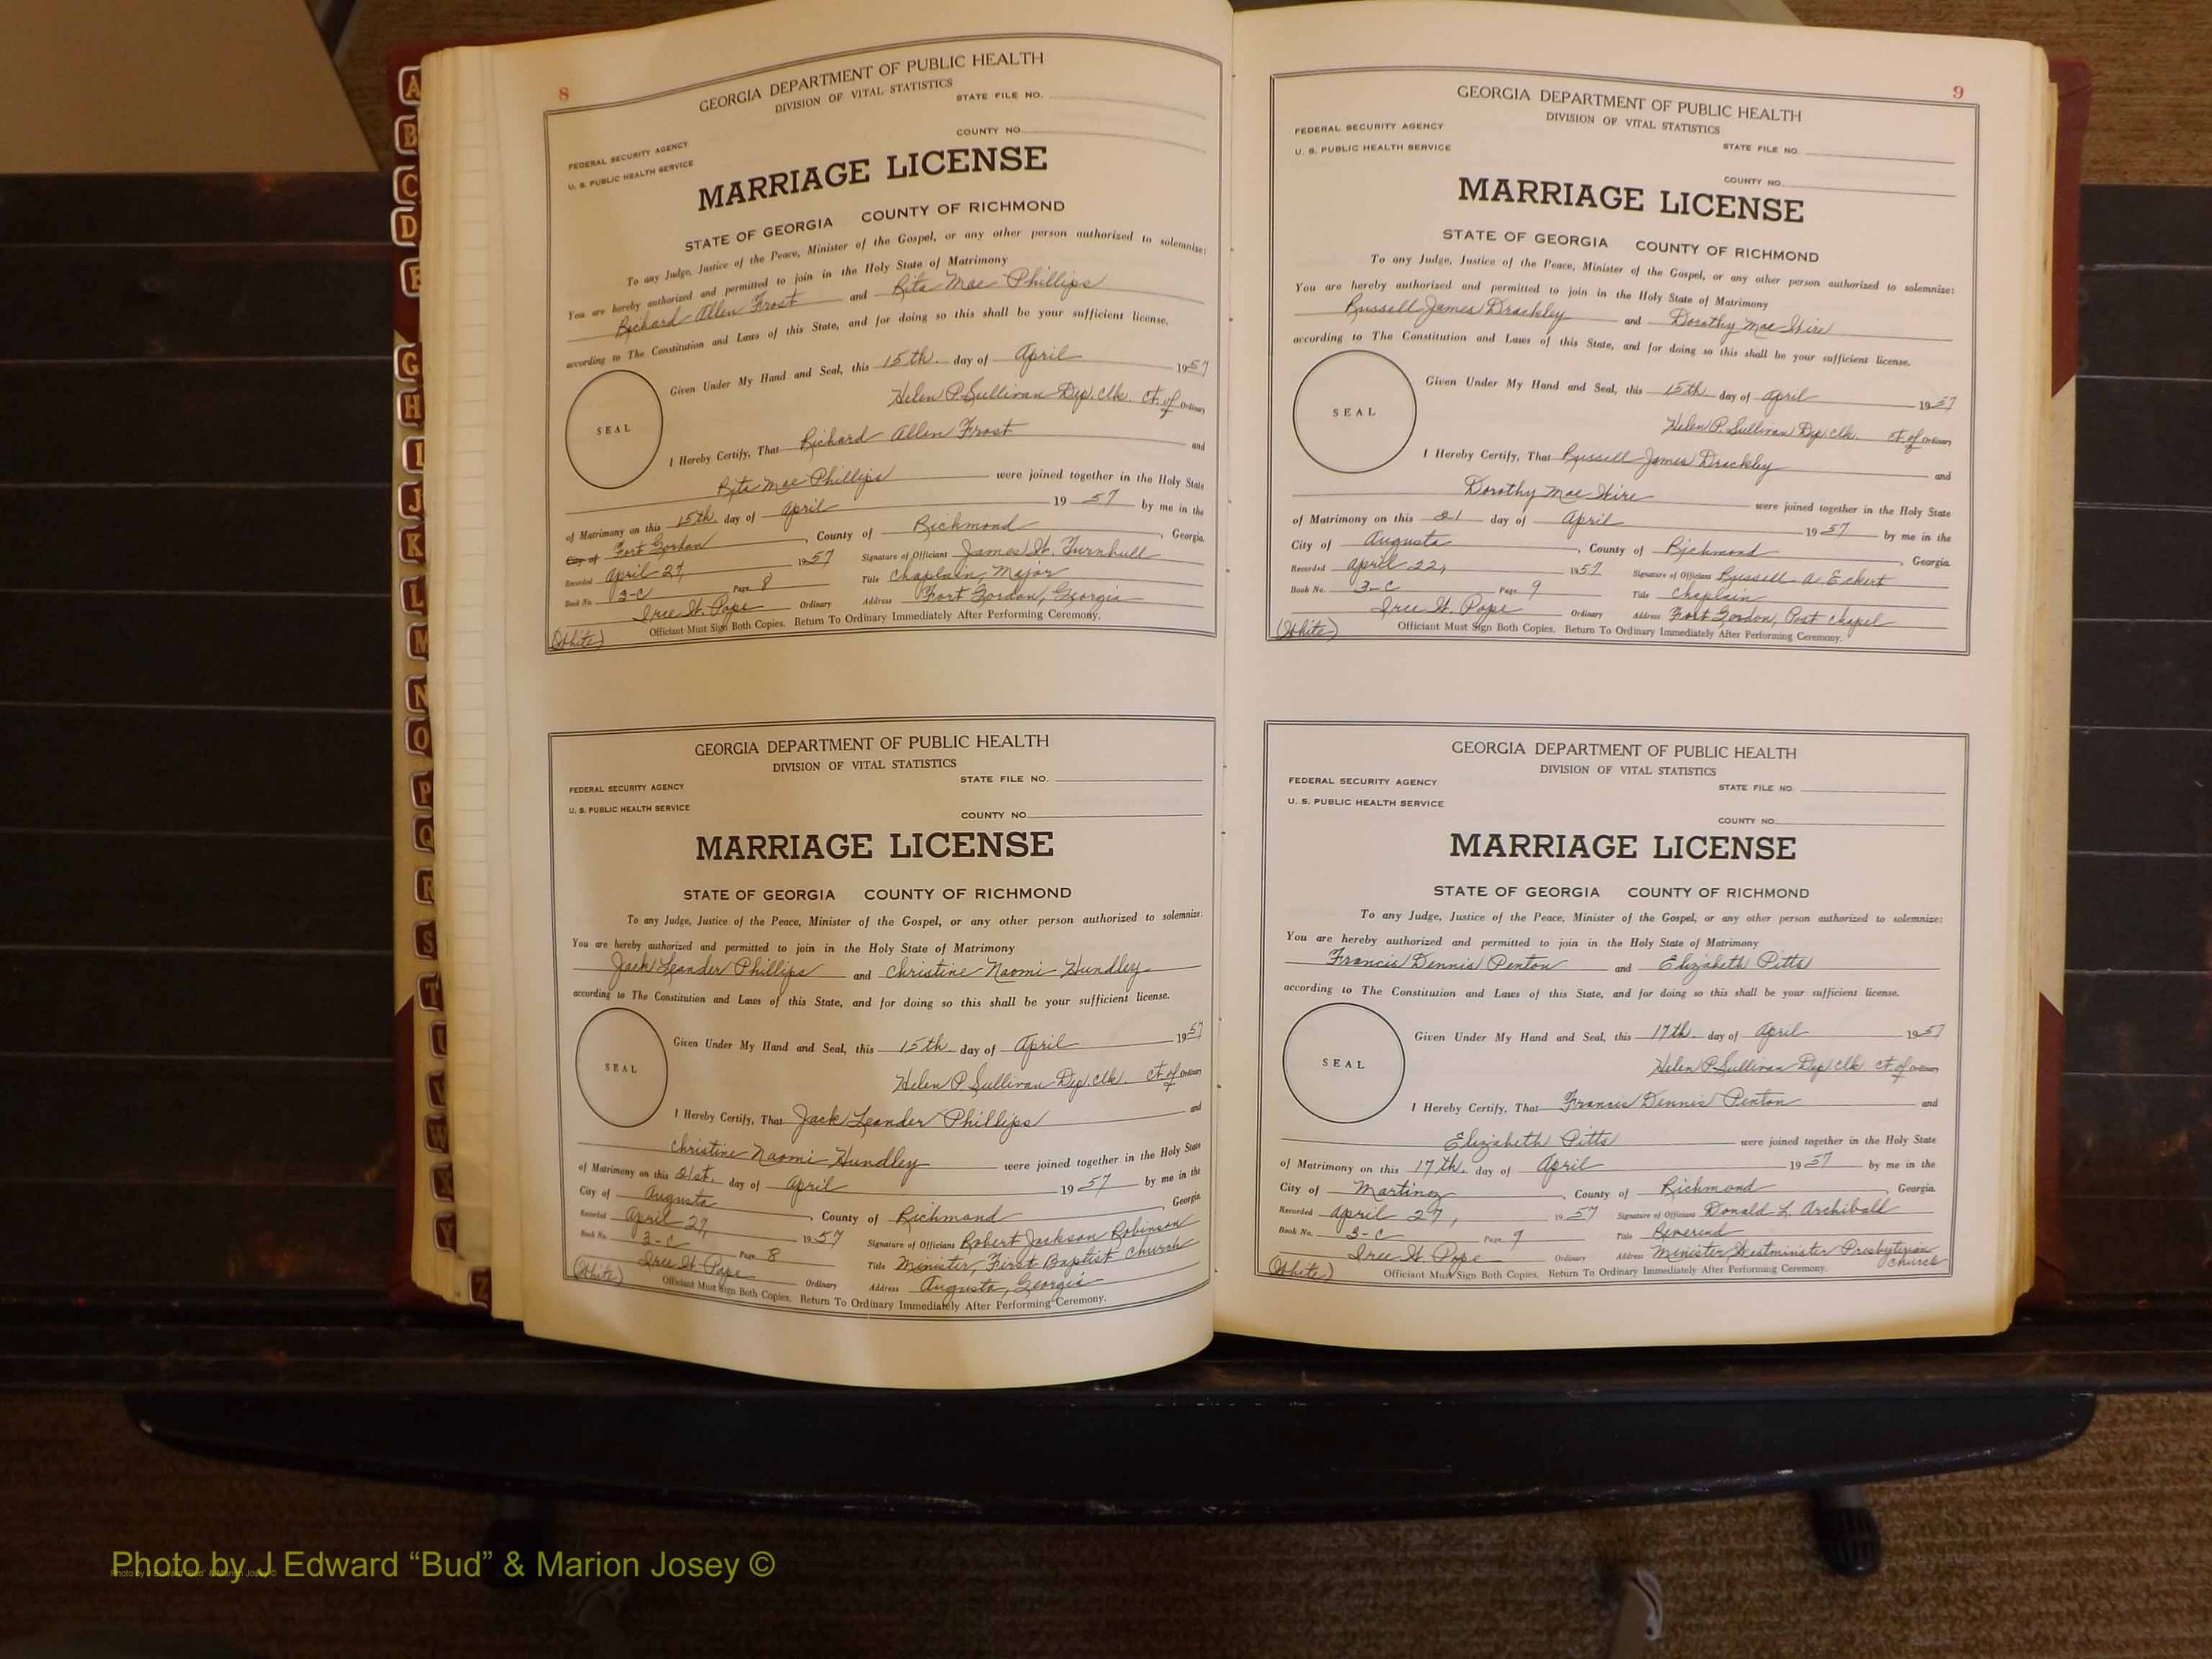 A
B
C
D
F
G
H
I
J
K
L
M
N
O
P
Q
R
S
T
Y
Z
8
GEORGIA DEPARTMENT OF PUBLIC HEALTH
DIVISION OF VITAL STATISTICS
STATE FILE NO.
COUNTY NO.
FEDERAL SECURITY AGENCY
U. S. PUBLIC HEALTH SERVICE
MARRIAGE LICENSE
STATE OF GEORGIA COUNTY OF RICHMOND
To any Judge, Justice of the Peace, Minister of the Gospel, or any other person authorized to solemnize:
You are hereby authorized and permitted to join in the Holy State of Matrimony
Richard Allen Frost and Rita Mae Phillips
according to The Constitution and Laws of this State, and for doing so this shall be your sufficient license.
Given Under My Hand and Seal, this 15th. day of April 1957
Helen P. Sullivan Dep. Clk. Ct. of Ordinary
SEAL
I Hereby Certify, That Richard Allen Frost and
Rita Mae Phillips were joined together in the Holy State
of Matrimony on this 15th. day of April 19 57 by me in the
City of Fort Gordon, County of Richmond, Georgia.
Recorded April 27, 1957 Signature of Officiant James W. Turnbull
Book No. 3-C Page 8 Title Chaplain, Major
Iree W. Pope Ordinary Address Fort Gordon, Georgia
(White) Officiant Must Sign Both Copies. Return To Ordinary Immediately After Performing Ceremony.
GEORGIA DEPARTMENT OF PUBLIC HEALTH
DIVISION OF VITAL STATISTICS
STATE FILE NO.
FEDERAL SECURITY AGENCY
U. S. PUBLIC HEALTH SERVICE
COUNTY NO.
MARRIAGE LICENSE
STATE OF GEORGIA COUNTY OF RICHMOND
To any Judge, Justice of the Peace, Minister of the Gospel, or any other person authorized to solemnize:
You are hereby authorized and permitted to join in the Holy State of Matrimony
Jack Leander Phillips and Christine Naomi Hundley
according to The Constitution and Laws of this State, and for doing so this shall be your sufficient license.
Given Under My Hand and Seal, this 15th. day of April 1957
Helen P. Sullivan Dep. Clk. Ct. of Ordinary
SEAL
I Hereby Certify, That Jack Leander Phillips and
Christine Naomi Hundley were joined together in the Holy State
of Matrimony on this 21st. day of April 19 57 by me in the
City of Augusta, County of Richmond, Georgia.
Recorded April 27, 1957 Signature of Officiant Robert Jackson Robinson
Book No. 3-C Page 8 Title Minister, First Baptist Church
Iree W. Pope Ordinary Address Augusta, Georgia
(White) Officiant Must Sign Both Copies. Return To Ordinary Immediately After Performing Ceremony.
9
GEORGIA DEPARTMENT OF PUBLIC HEALTH
DIVISION OF VITAL STATISTICS
FEDERAL SECURITY AGENCY
U. S. PUBLIC HEALTH SERVICE
STATE FILE NO.
COUNTY NO.
MARRIAGE LICENSE
STATE OF GEORGIA COUNTY OF RICHMOND
To any Judge, Justice of the Peace, Minister of the Gospel, or any other person authorized to solemnize:
You are hereby authorized and permitted to join in the Holy State of Matrimony
Russell James Drackley and Dorothy Mae Wire
according to The Constitution and Laws of this State, and for doing so this shall be your sufficient license.
Given Under My Hand and Seal, this 15th. day of April 1957
Helen P. Sullivan Dep. Clk. Ct. of Ordinary
SEAL
I Hereby Certify, That Russell James Drackley and
Dorothy Mae Wire were joined together in the Holy State
of Matrimony on this 21 day of April 19 57 by me in the
City of Augusta, County of Richmond, Georgia.
Recorded April 22, 1957 Signature of Officiant Russell A. Eckert
Book No. 3-C Page 9 Title Chaplain
Iree W. Pope Ordinary Address Fort Gordon, Post Chapel
(White) Officiant Must Sign Both Copies. Return To Ordinary Immediately After Performing Ceremony.
GEORGIA DEPARTMENT OF PUBLIC HEALTH
DIVISION OF VITAL STATISTICS
FEDERAL SECURITY AGENCY
STATE FILE NO.
U. S. PUBLIC HEALTH SERVICE
COUNTY NO.
MARRIAGE LICENSE
STATE OF GEORGIA COUNTY OF RICHMOND
To any Judge, Justice of the Peace, Minister of the Gospel, or any other person authorized to solemnize:
You are hereby authorized and permitted to join in the Holy State of Matrimony
Francis Dennis Penton and Elizabeth Pitts
according to The Constitution and Laws of this State, and for doing so this shall be your sufficient license.
Given Under My Hand and Seal, this 17th. day of April 1957
Helen P. Sullivan Dep. Clk. Ct. of Ordinary
SEAL
I Hereby Certify, That Francis Dennis Penton and
Elizabeth Pitts were joined together in the Holy State
of Matrimony on this 17th. day of April 19 57 by me in the
City of Martinez, County of Richmond, Georgia.
Recorded April 27, 1957 Signature of Officiant Donald L. Archibald
Book No. 3-C Page 9 Title Reverend
Iree W. Pope Ordinary Address Minister, Westminister Presbyterian Church
(White) Officiant Must Sign Both Copies. Return To Ordinary Immediately After Performing Ceremony.
Photo by J Edward “Bud” & Marion Josey ©
Photo by J Edward "Bud" & Marion Josey ©